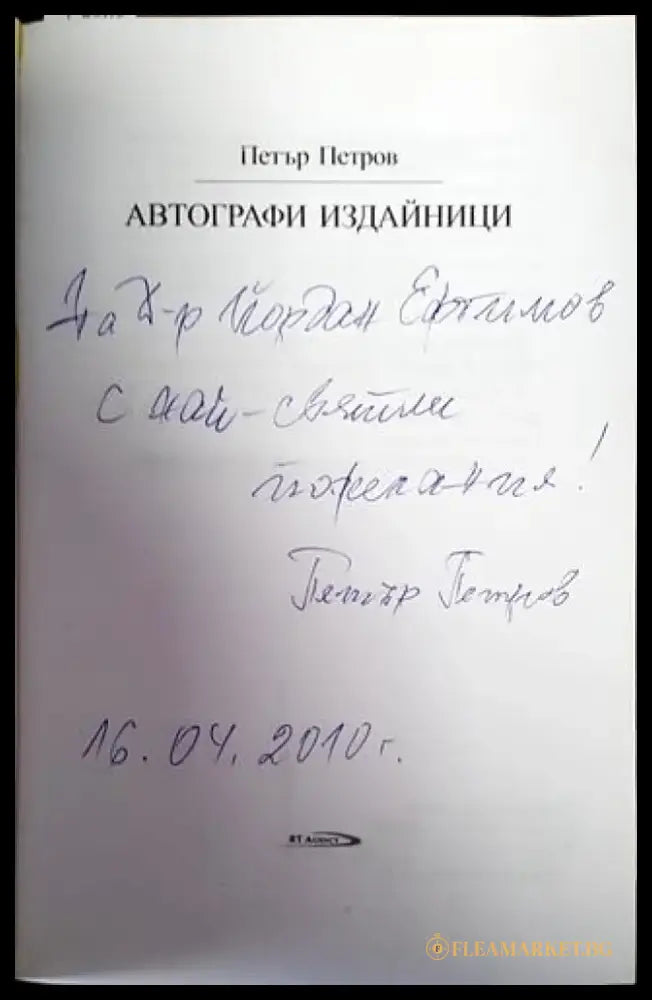 Петър Петров
АВТОГРАФИ ИЗДАЙНИЦИ
На д-р Йордан Ефтимов
с най-светли
пожелания!
Петър Петров
16.04.2010 г.
RT Agency
FLEAMARKET.BG